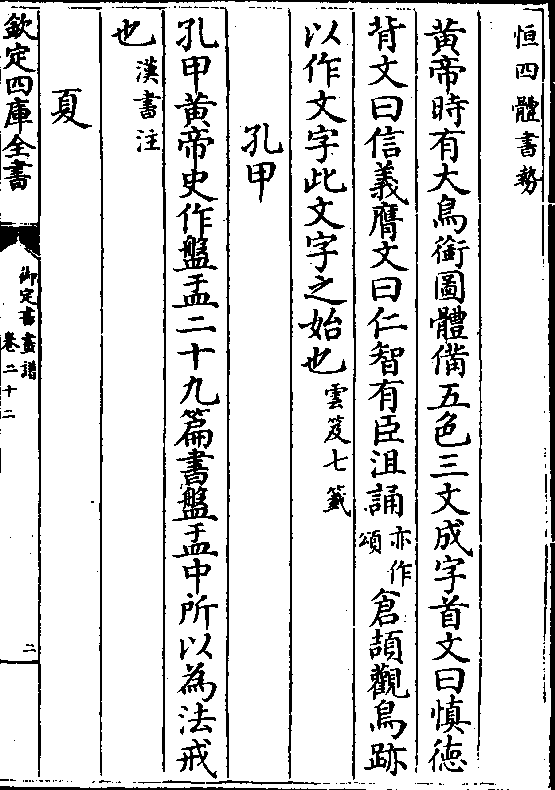 恒四體書勢
黃帝時有大鳥銜圖體備五色三文成字首文曰慎德
背文曰信義膺文曰仁智有臣沮誦亦作頌倉頡觀鳥跡
以作文字此文字之始也雲笈七籤
孔甲
孔甲黃帝史作盤盂二十九篇書盤盂中所以為法戒
也漢書注
夏
欽定四庫全書
御定書畫譜
卷二十二
二